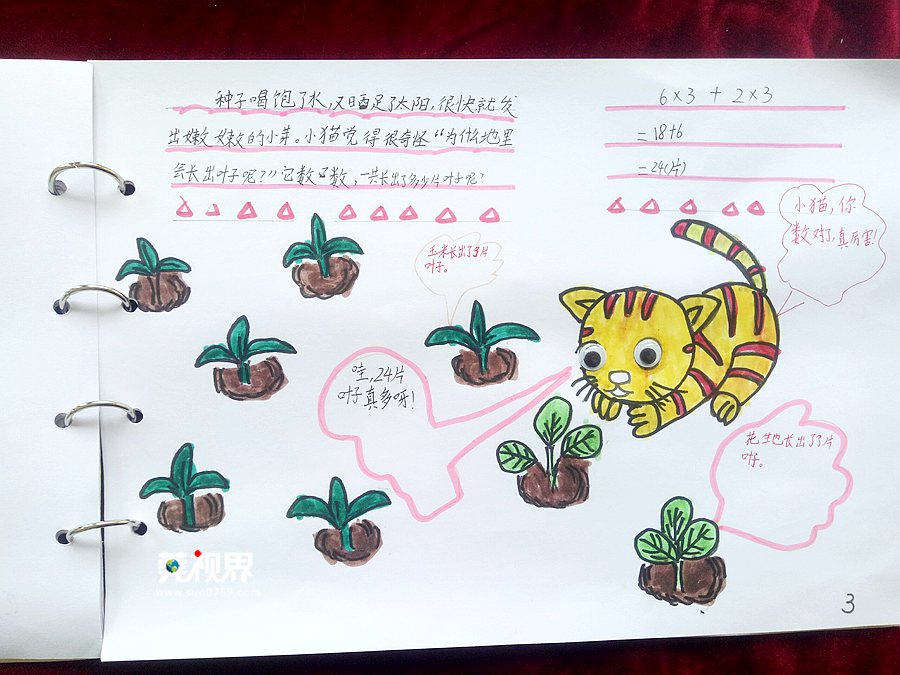 种子喝饱了水,又晒足了太阳,很快就发
出嫩嫩的小芽。小猫觉得很奇怪“为什么地里
会长出叶子呢?”它数了数,一共长出了多少片叶子呢?
6×3+2×3
=18+6
=24(片)
小猫,你
数对了,真厉害!
玉米长出了3片
叶子。
哇,24片
叶子真多呀!
花生也长出了3片
叶子。
莞视界
www.sun0769.com
3